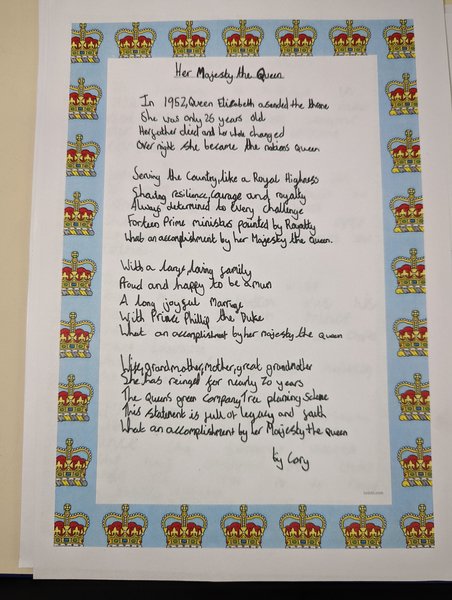 Her Majesty the Queen
In 1952, Queen Elizabeth ascended the throne
She was only 25 years old
Her father died and her whole changed
Over night she became the nations Queen
Serving the Country, like a Royal Highness
Showing resilience, courage and royalty
Always determined to every challenge
Forteen Prime ministers pointed by Royalty
What an accomplishment by her Majesty the Queen.
With a large, loving family
Proud and happy to be a mum
A long joyful Marriage
With Prince Phillip the Duke
What an accomplishment by her majesty the queen
Wife, grandmother, mother, great grandmother
She has reinged for nearly 70 years
The Queen's green Company, Tree planing scheme
This statement is full of legacy and faith
What an accomplishment by her Majesty the Queen
by Cory